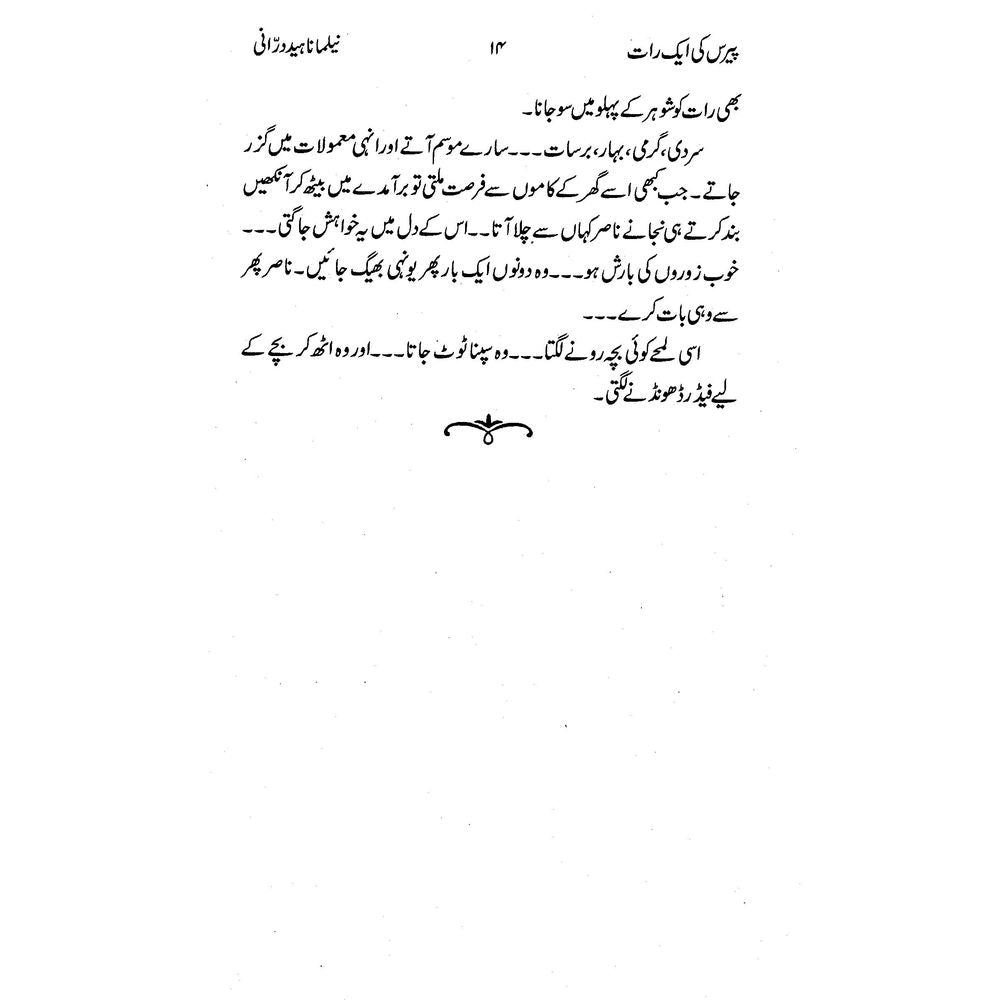 پیرس کی ایک رات ۱۴ نیلما ناہید درّانی
بھی رات کو شوہر کے پہلو میں سو جانا۔
سردی، گرمی، بہار، برسات۔۔۔سارے موسم آتے اور انہی معمولات میں گزر
جاتے۔ جب کبھی اسے گھر کے کاموں سے فرصت ملتی تو برآمدے میں بیٹھ کر آنکھیں
بند کرتے ہی نجانے ناصر کہاں سے چلا آتا۔۔اس کے دل میں یہ خواہش جاگتی۔۔۔
خوب زوروں کی بارش ہو۔۔۔وہ دونوں ایک بار پھر یونہی بھیگ جائیں۔ ناصر پھر
سے وہی بات کرے۔۔۔
اسی لمحے کوئی بچہ رونے لگتا۔۔۔وہ سپنا ٹوٹ جاتا۔۔۔اور وہ اٹھ کر بچے کے
لیے فیڈر ڈھونڈنے لگتی۔